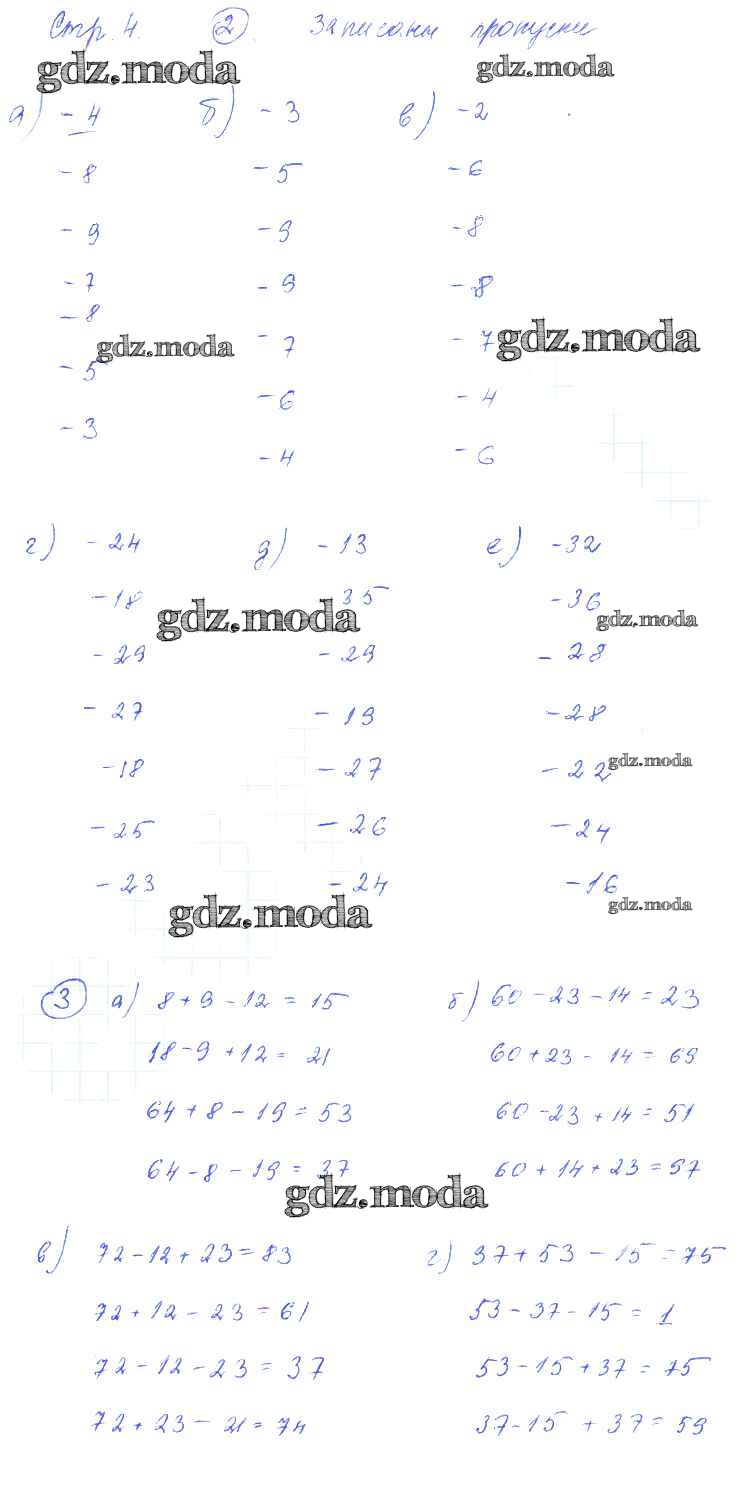 Стр. 4. 2. Записаны пропуски
gdz.moda gdz.moda
а) - 4 б) - 3 в) - 2
- 8 - 5 - 6
- 9 - 9 - 8
- 7 - 9 - 8
- 8
gdz.moda - 7 - 7 gdz.moda
- 5
- 6 - 4
- 3
- 4 - 6
г) - 24 д) - 13 е) - 32
- 18 35 - 36
gdz.moda gdz.moda
- 29 - 29 - 28
- 27 - 19 - 28
- 18 - 27 - 22 gdz.moda
- 25 - 26 - 24
- 23 - 24 - 16
gdz.moda gdz.moda
3 а) 8 + 9 - 12 = 15 б) 60 - 23 - 14 = 23
18 - 9 + 12 = 21 60 + 23 - 14 = 69
64 + 8 - 19 = 53 60 - 23 + 14 = 51
64 - 8 - 19 = 37 60 + 14 + 23 = 97
gdz.moda
в) 72 - 12 + 23 = 83 г) 37 + 53 - 15 = 75
72 + 12 - 23 = 61 53 - 37 - 15 = 1
72 - 12 - 23 = 37 53 - 15 + 37 = 75
72 + 23 - 21 = 74 37 - 15 + 37 = 59